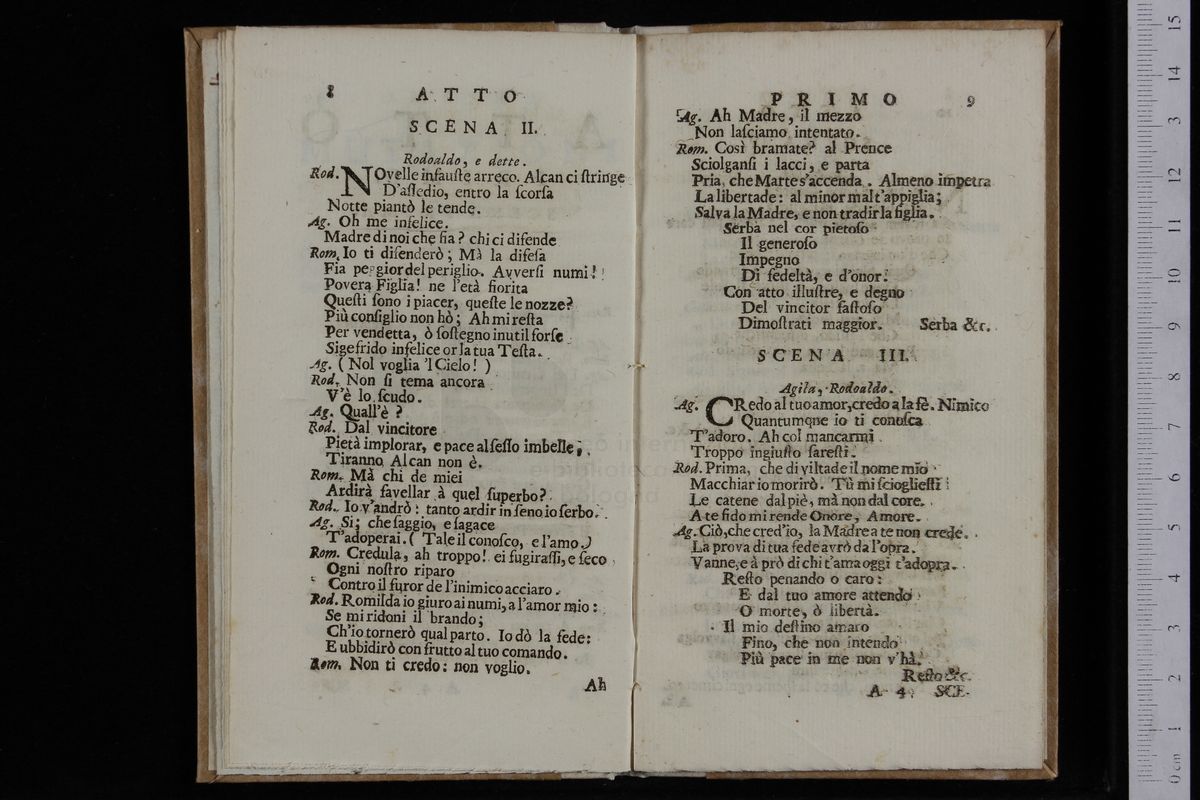 8 ATTO
SCENA II.
Rodoaldo, e dette.
Rod. NOvelle infauſte arreco. Alcan ci ſtringe
D'aſſedio, entro la ſcorſa
Notte piantò le tende.
Ag. Oh me infelice.
Madre di noi che fia? chi ci difende
Rom. Io ti difenderò; Mà la difeſa
Fia peggior del periglio. Avverſi numi!
Povera Figlia! ne l'età fiorita
Queſti ſono i piacer, queſte le nozze?
Più conſiglio non hò; Ah mi reſta
Per vendetta, ò ſoſtegno inutil forſe
Sigefrido infelice or la tua Teſta.
Ag. (Nol voglia 'l Cielo!)
Rod. Non ſi tema ancora
V'è lo ſcudo.
Ag. Quall'è?
Rod. Dal vincitore
Pietà implorar, e pace al ſeſſo imbelle;
Tiranno Alcan non è.
Rom. Mà chi de miei
Ardirà favellar à quel ſuperbo?
Rod. Io v'andrò: tanto ardir in ſeno io ſerbo.
Ag. Si; che ſaggio, e ſagace
T'adoperai. (Tale il conoſco, e l'amo.)
Rom. Credula, ah troppo! ei fugiraſſi, e ſeco
Ogni noſtro riparo
Contro il furor de l'inimico acciaro.
Rod. Romilda io giuro ai numi, a l'amor mio:
Se mi ridoni il brando;
Ch'io tornerò qual parto. Io dò la fede:
E ubbidirò con frutto al tuo comando.
Rom. Non ti credo: non voglio.
Ah
PRIMO 9
Ag. Ah Madre, il mezzo
Non laſciamo intentato.
Rom. Così bramate? al Prence
Sciolganſi i lacci, e parta
Pria, che Marte s'accenda. Almeno impetra
La libertade: al minor mal t'appiglia;
Salva la Madre, e non tradir la figlia.
Serba nel cor pietoſo
Il generoſo
Impegno
Di fedeltà, e d'onor.
Con atto illuſtre, e degno
Del vincitor faſtoſo
Dimoſtrati maggior. Serba &c.
SCENA III.
Agila, Rodoaldo.
Ag. CRedo al tuo amor, credo a la fè. Nimico
Quantumqne io ti conoſca
T'adoro. Ah col mancarmi
Troppo ingiuſto ſareſti.
Rod. Prima, che di viltade il nome mio
Macchiar io morirò. Tù mi ſciogliesti
Le catene dal piè, mà non dal core.
A te fido mi rende Onore, Amore.
Ag. Ciò, che cred'io, la Madre a te non crede.
La prova di tua fede avrò da l'opra.
Vanne, e à prò di chi t'ama oggi t'adopra.
Reſto penando o caro:
E dal tuo amore attendo
O morte, ò libertà.
Il mio deſtino amaro
Fino, che non intendo
Più pace in me non v'hà.
Reſto &c.
A 4 SCE-